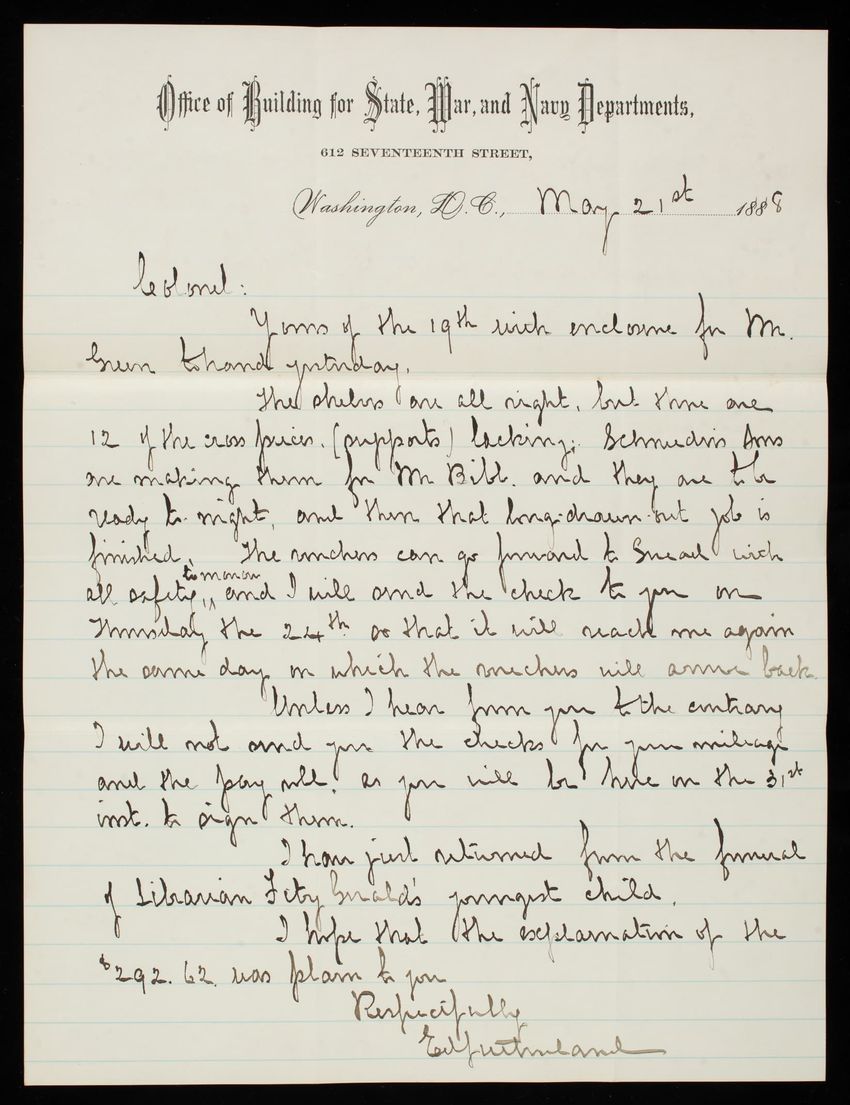 Office of Building for State, War, and Navy Departments,
612 SEVENTEENTH STREET,
Washington, D.C., May 21st 1888
Colonel:
Yours of the 19th with enclosure for Mr.
Green to hand yesterday.
The shelves are all right, but there are
12 of the cross pieces. (supports) lacking; Schneider's Sons
are making them for Mr Bibb. and they are to be
ready to-night, and then that long-drawn-out job is
finished. The vouchers can go forward to Snead with
all safety, to-morrow and I will send the check to you on
Thursday the 24th. so that it will reach me again
the same day on which the vouchers will arrive back.
Unless I hear from you to the contrary
I will not send you the checks for your mileage
and the pay roll, as you will be here on the 31st
inst. to sign them.
I have just returned from the funeral
of Librarian FitzGerald's youngest child.
I hope that the explanation of the
$292.62. was plain to you
Respectfully